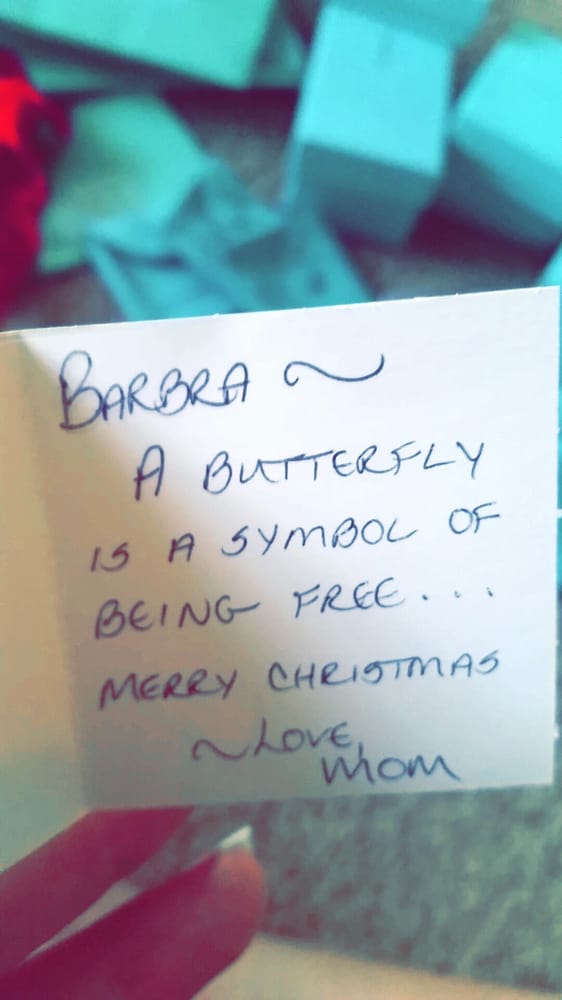 BARBRA ~
A BUTTERFLY
IS A SYMBOL OF
BEING FREE...
MERRY CHRISTMAS
~LOVE,
MOM